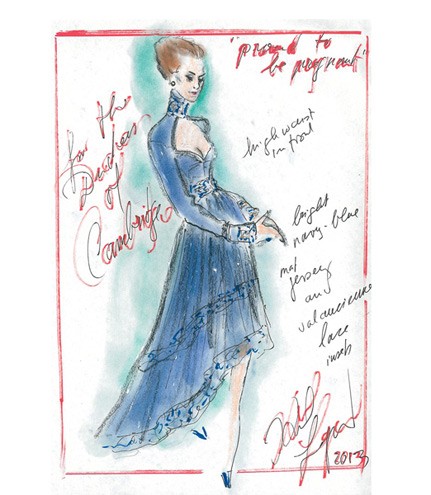 "proud to
be pregnant"
for the
Duchess
of
Cambridge
high waist
in front
bright
navy-blue
mat
jersey
and
valencienne
lace
insets
2013